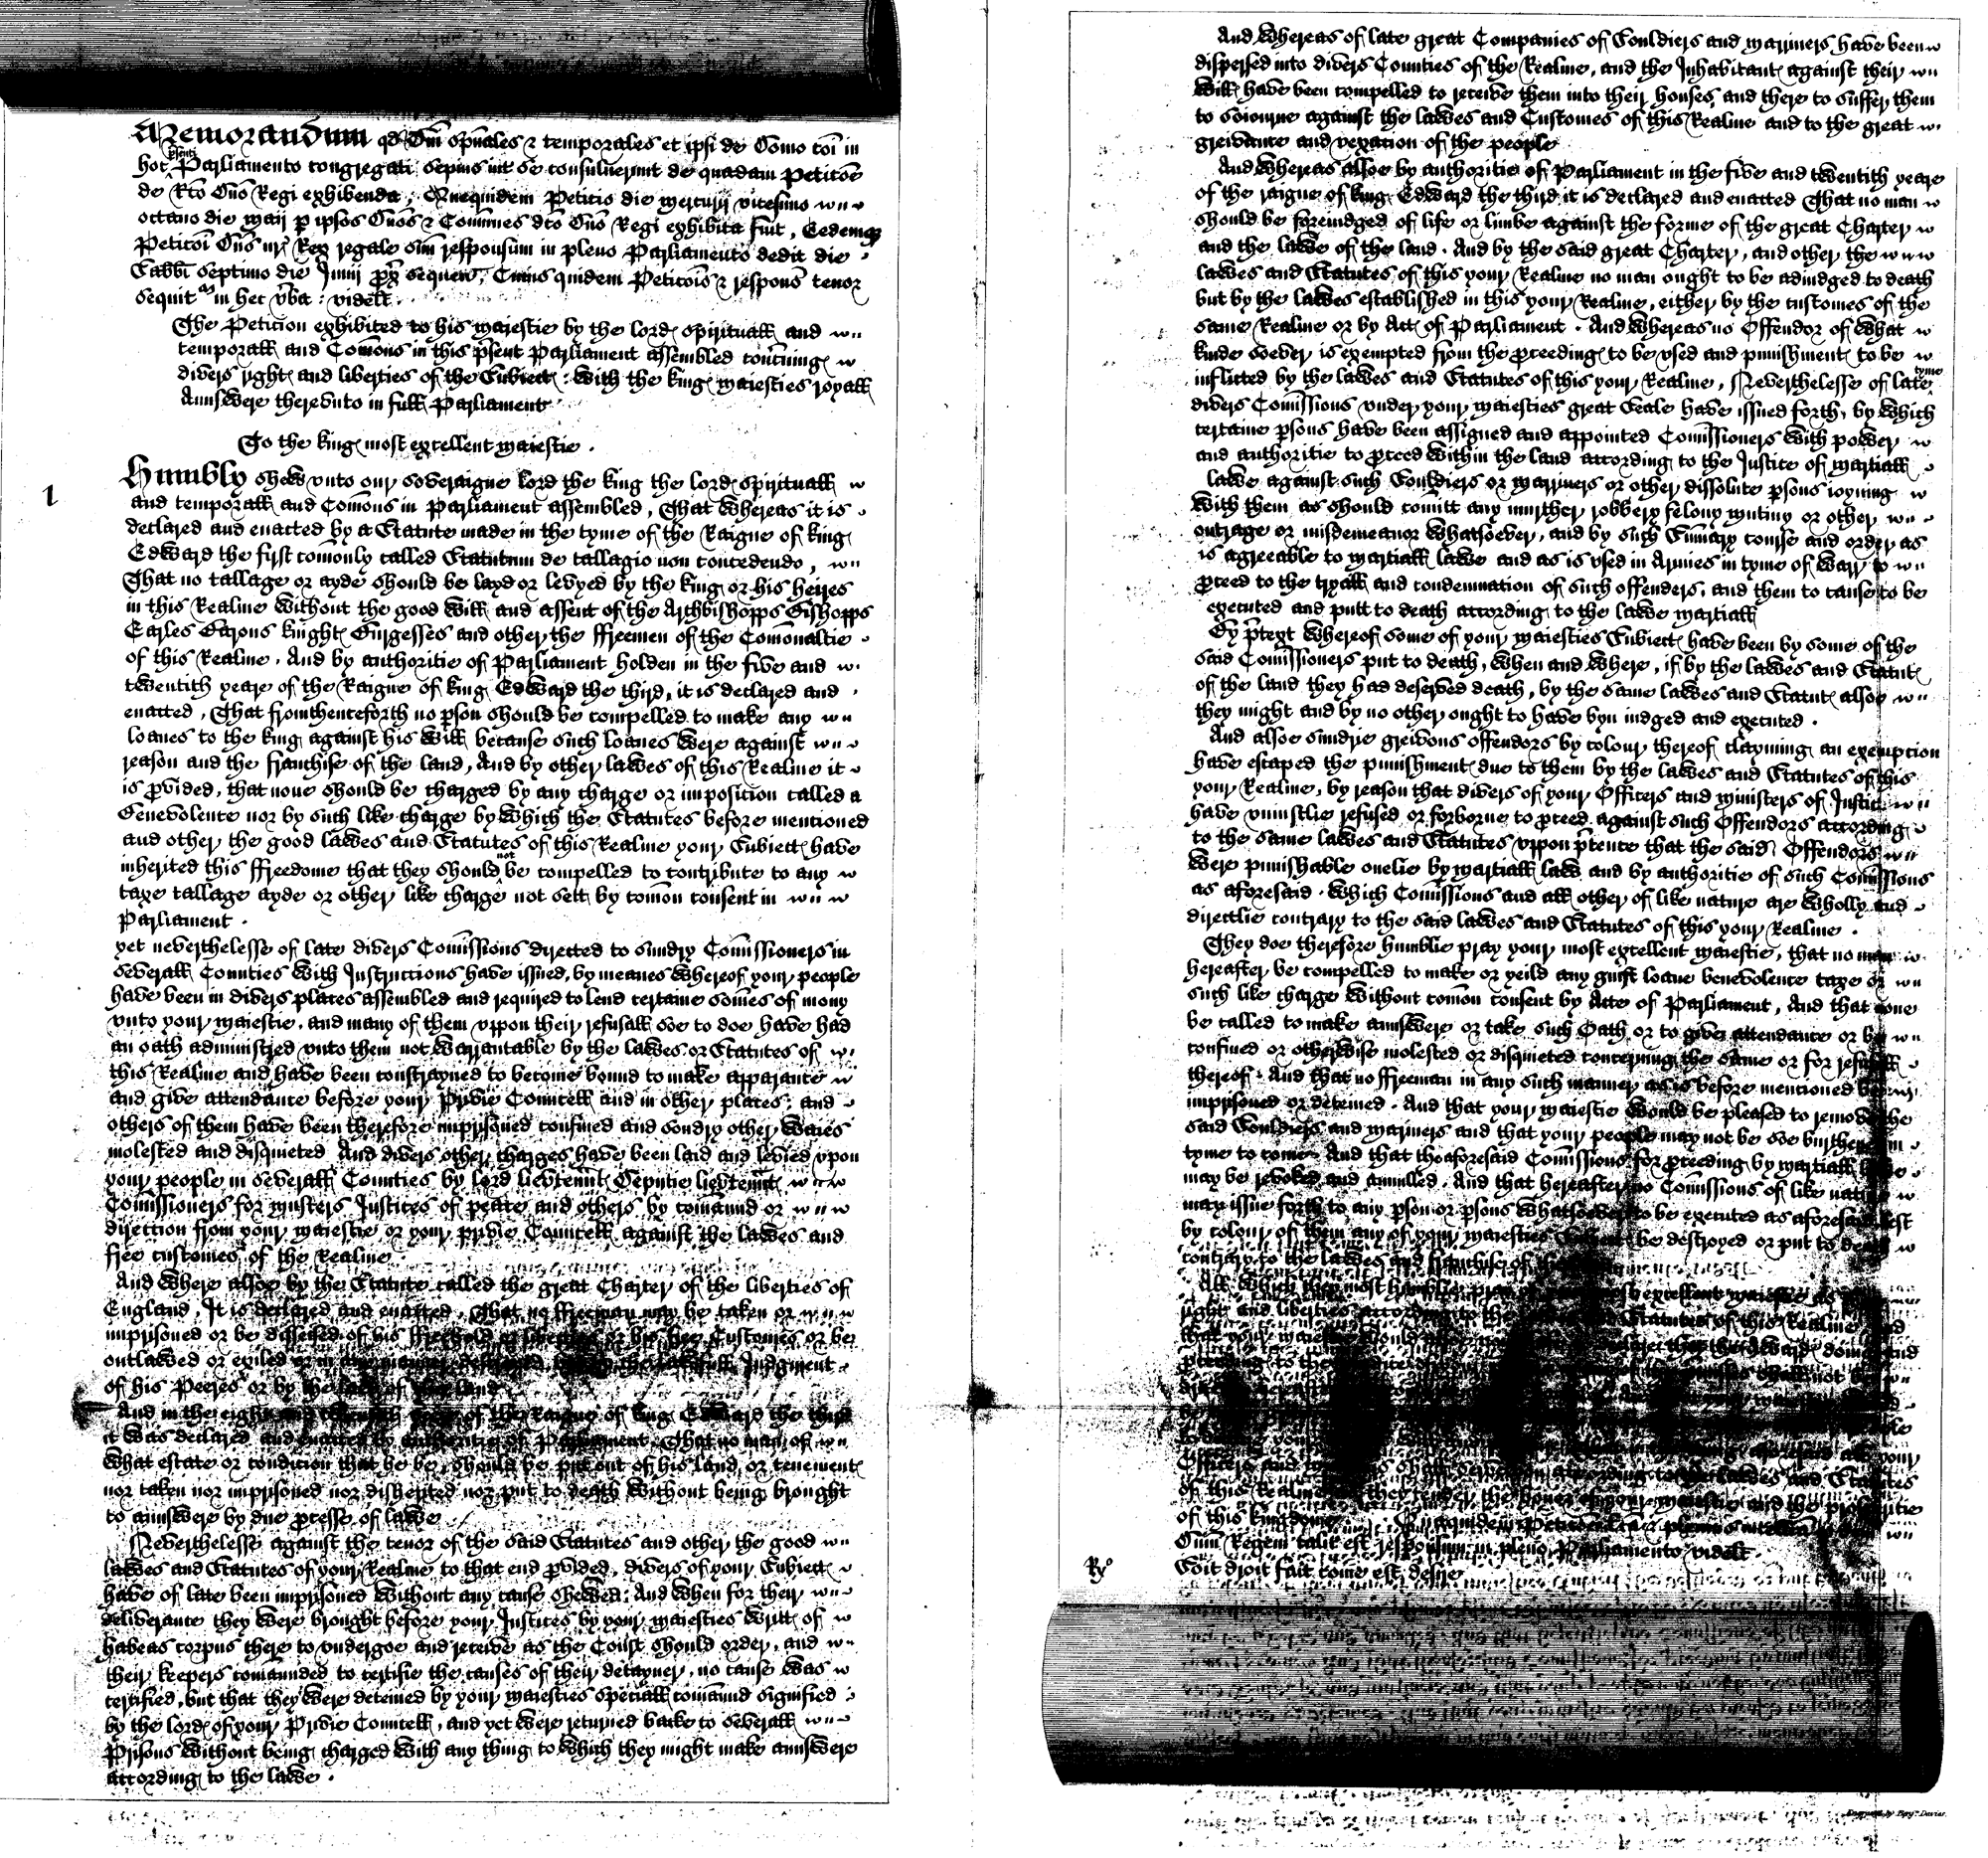 Memorandum qd Dni spuales & temporales et ipsi de Como coi in
hoc psenti Parliamento congregati sepius int se consuluerunt de quadam Peticoe
de Rto Dno Regi exhibenda, Quequidem Peticio die mercurij vicesimo
octavo die maij p ipsos Dnos & Comunes dco Dno Regi exhibita fuit, Eedemq
Peticoi Dns nr Rex regale sim responsum in pleno Parliamento dedit die
Sabbi septimo die Junij prx sequen, Cuius quidem Peticois & respons tenor
sequit in hec vba : videlt.
The Peticion exhibited to his majestie by the lord spirituall and
temporall and Comons in this psent Parliament assembled concning
divers right and liberties of the Subiect : with the king majesties royall
Aunswere therevnto in full Parliament
To the king most excellent majestie .
1
Humbly shew vnto our soveraigne lord the king the lord spirituall
and temporall and Comons in Parliament assembled, That whereas it is
declared and enacted by a Statute made in the tyme of the Raigne of king
Edward the first comonly called Statutum de tallagio non concedendo,
That no tallage or ayde should be layd or levyed by the king or his heires
in this Realme without the good will and assent of the Archbishopps Bishopps
Earles Barons knight Burgesses and other the ffreemen of the Comonaltie
of this Realme. And by authoritie of Parliament holden in the five and
twentith yeare of the Raigne of king Edward the third, it is declared and
enacted, That fromthenceforth no pson should be compelled to make any
loanes to the king against his will because such loanes were against
reason and the franchise of the land, And by other lawes of this Realme it
is pvided, that none should be charged by any charge or imposition called a
Benevolence nor by such like charge by which the Statutes before mentioned
and other the good lawes and Statutes of this Realme your Subiect have
inherited this ffreedome that they should not be compelled to contribute to any
taxe tallage ayde or other like charge not sett by comon consent in
Parliament .
yet neverthelesse of late divers Comissions directed to sundry Comissioners in
severall Counties with Instructions have issued, by meanes whereof your people
have been in divers places assembled and required to lend certaine somes of mony
vnto your majestie, and many of them vppon their refusall soe to doe have had
an oath administred vnto them not warrantable by the lawes or Statutes of
this Realme and have been constrayned to become bound to make apparance
and give attendance before your Privie Councell and in other places; and
others of them have been therefore imprisoned confined and sondry other waies
molested and disquieted And divers other charges have been laid and levied vpon
your people in severall Counties by lord lievtennt Deputie lievtennt
Comissioners for musters Justices of peace and others by comaund or
direction from your majestie or your privie Councell against the lawes and
free customes of the Realme
And where alsoe by the Statute called the great Charter of the liberties of
England, It is declared and enacted, That no ffreeman may be taken or
imprisoned or be disseised of his ffreehold or liberties or his free Customes or be
outlawed or exiled or in any manner destroyed, but by the lawfull Judgment
of his Peeres or by the law of the land
And in the eight and twentith yeere of the Raigne of king Edward the third
it was declared and enacted by authoritie of Parliament, That no man of
what estate or condition that he be, should be put out of his land or tenement
nor taken nor imprisoned nor disherited nor put to death without being brought
to aunswere by due pcesse of lawe
Neverthelesse against the tenor of the said Statutes and other the good
lawes and Statutes of your Realme to that end pvided, divers of your Subiect
have of late been imprisoned without any cause shewed: And when for their
deliverance they were brought before your Justices by your majesties writt of
habeas corpus there to vndergoe and receive as the Court should order, and
their keepers comaunded to certifie the causes of their detayner, no cause was
certified, but that they were deteined by your majesties speciall comaund signified
by the lord of your Privie Councell, and yet were returned backe to severall
Prisons without being charged with any thing to which they might make aunswere
according to the lawe .
And whereas of late great Companies of Souldiers and mariners have been
dispersed into divers Counties of the Realme, and the Inhabitant against their
will have been compelled to receive them into their houses, and there to suffer them
to soiourne against the lawes and Customes of this Realme and to the great
greivance and vexation of the people
And whereas alsoe by authoritie of Parliament in the five and twentith yeare
of the raigne of king Edward the third it is declared and enacted That no man
should be foreiudged of life or limbe against the forme of the great Charter
and the lawe of the land. And by the said great Charter, and other the
lawes and Statutes of this your Realme no man ought to be adiudged to death
but by the lawes established in this your Realme, either by the customes of the
same Realme or by Act of Parliament . And whereas no Offendor of what
kinde soever is exempted from the pceeding to be vsed and punishment to be
inflicted by the lawes and Statutes of this your Realme, Neverthelesse of late tyme
divers Comissions vnder your majesties great Seale have issued forth, by which
certaine psons have been assigned and appointed Comissioners with power
and authoritie to pceed within the land according to the Justice of martiall
lawe against such Souldiers or marriners or other dissolute psons ioyning
with them as should comitt any murther robbery felony mutiny or other
outrage or misdemeanor whatsoever, and by such Sumary course and order as
is agreeable to martiall lawe and as is vsed in Armies in tyme of warr to
pceed to the tryall and condemnation of such offenders, and them to cause to be
executed and putt to death according to the lawe martiall
By ptext whereof some of your majesties Subiect have been by some of the
said Comissioners put to death, when and where, if by the lawes and Statut
of the land they had deserved death, by the same lawes and Statut alsoe
they might and by no other ought to have byn iudged and executed .
And alsoe sundrie greivous offendors by colour thereof clayming an exemption
have escaped the punishment due to them by the lawes and Statutes of this
your Realme, by reason that divers of your Officers and ministers of Justice
have vniustlie refused or forborne to pceed against such Offendors according
to the same lawes and Statutes vppon ptence that the said Offendors
were punishable onelie by martiall law and by authoritie of such Comissions
as aforesaid . Which Comissions and all other of like nature are wholly and
directlie contrary to the said lawes and Statutes of this your Realme .
They doe therefore humblie pray your most excellent majestie, that no man
hereafter be compelled to make or yeild any guift loane benevolence taxe or
such like charge without comon consent by Acte of Parliament, And that none
be called to make aunswere or take such Oath or to give attendance or be
confined or otherwise molested or disquieted concerning the same or for refusall
thereof. And that no ffreeman in any such manner as is before mentioned be
imprisoned or deteined . And that your majestie would be pleased to remove the
said Souldiers and mariners and that your people may not be soe burthened in
tyme to come. And that the aforesaid Comissions for pceeding by martiall lawe
may be revoked and annulled. And that hereafter no Comissions of like nature
may issue forth to any pson or psons whatsoever to be executed as aforesaid, lest
by colour of them any of your majesties be destroyed or put to death
contrary to the lawes and franchise of the
All which they most humblie pray of most excellent majestie as
right and liberties according to the Statutes of this Realme and
that your majestie would
pceeding to the
shall not
Officers and according to the lawes and Statutes
of this Realme as they tender the honor of your majestie and the prosperitie
of this kingdome Quaquidem Peticoe
Dum Regem talit est responsum in pleno Parliamento videlt.
Ry
Soit droit fait come est desire
Engraved by Benj. Davies